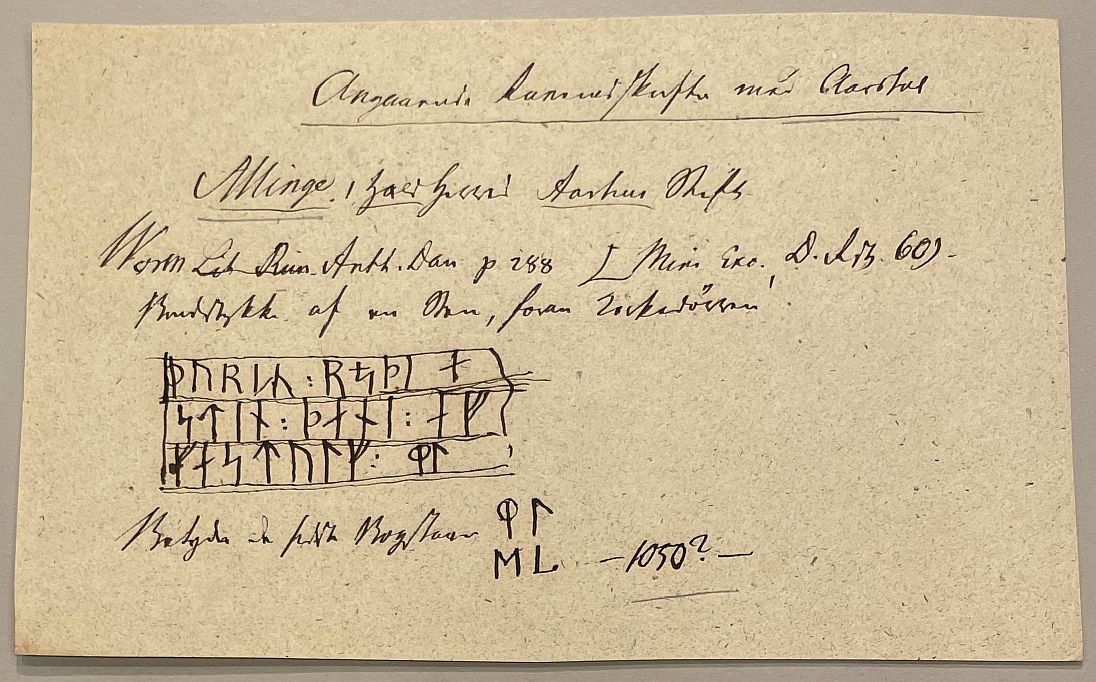 Angaaende Runeindskrifter med Aarstal
Allinge, i Hald Herred Aarhus Stift
Worm Lit. Run. Anth. Dan p 288 [Min Exc. D. R. 60).
Brudstykke af en Sten, foran Kirkedören
ᚦᚢᚱᛁᚢ : ᚱᛋᚦᛁ ᚾ
ᛋᛏᛁᚾ : ᚦᚾᚾᛁ : ᚾᚠ
ᚠᚾᛋᛏᚢᛚᚠ : ᛘᛚ
Betyder de sidste Bogstaver ᛘ ᛚ
M L – 1050? –